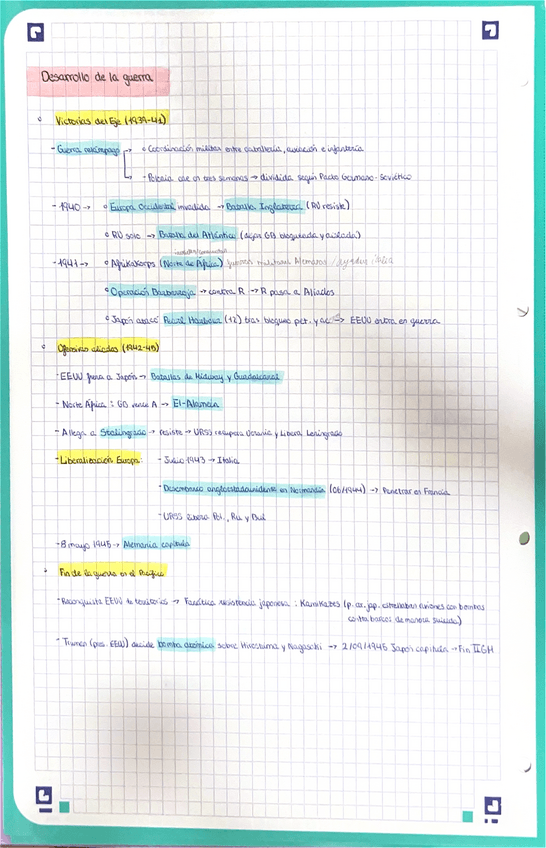 Desarrollo de la guerra
Victorias del Eje (1939-41)
- Guerra relámpago → Coordinación militar entre caballería, aviación e infantería
→ Polonia cae en tres semanas → dividida según Pacto Germano-Soviético
- 1940 → Europa Occidental invadida → Batalla Inglaterra (RU resiste)
RU solo → Batalla del Atlántico (dejar GB bloqueada y aislada)
- 1941 → Afrikakorps (Norte de África) fuerzas militares Alemanas /
Operación Barbarroja → contra R → R pasa a Aliados
Japón atacó Pearl Harbour (12) tras bloqueo pet. y ac. → EEUU entra en guerra
Ofensiva aliada (1942-45)
- EEUU frena a Japón → Batallas de Midway y Guadalcanal
- Norte África: GB vence A → El-Alamein
- A llega a Stalingrado → resiste → URSS recupera Ucrania y libera Leningrado
- Liberalización Europa: - Julio 1943 → Italia
- Desembarco angloestadounidense en Normandía (06/1944) → Penetrar en Francia
- URSS libera Pol., Ru y Bul
- 8 mayo 1945 → Alemania capitula
Fin de la guerra en el Pacífico
- Reconquista EEUU de territorios → Fanática resistencia japonesa: Kamikazes (p. av. jap. estrellaban aviones con bombas
contra barcos de manera suicida)
- Truman (pres. EEUU) decide bomba atómica sobre Hiroshima y Nagasaki → 2/09/1945 Japón capitula → Fin IIGM